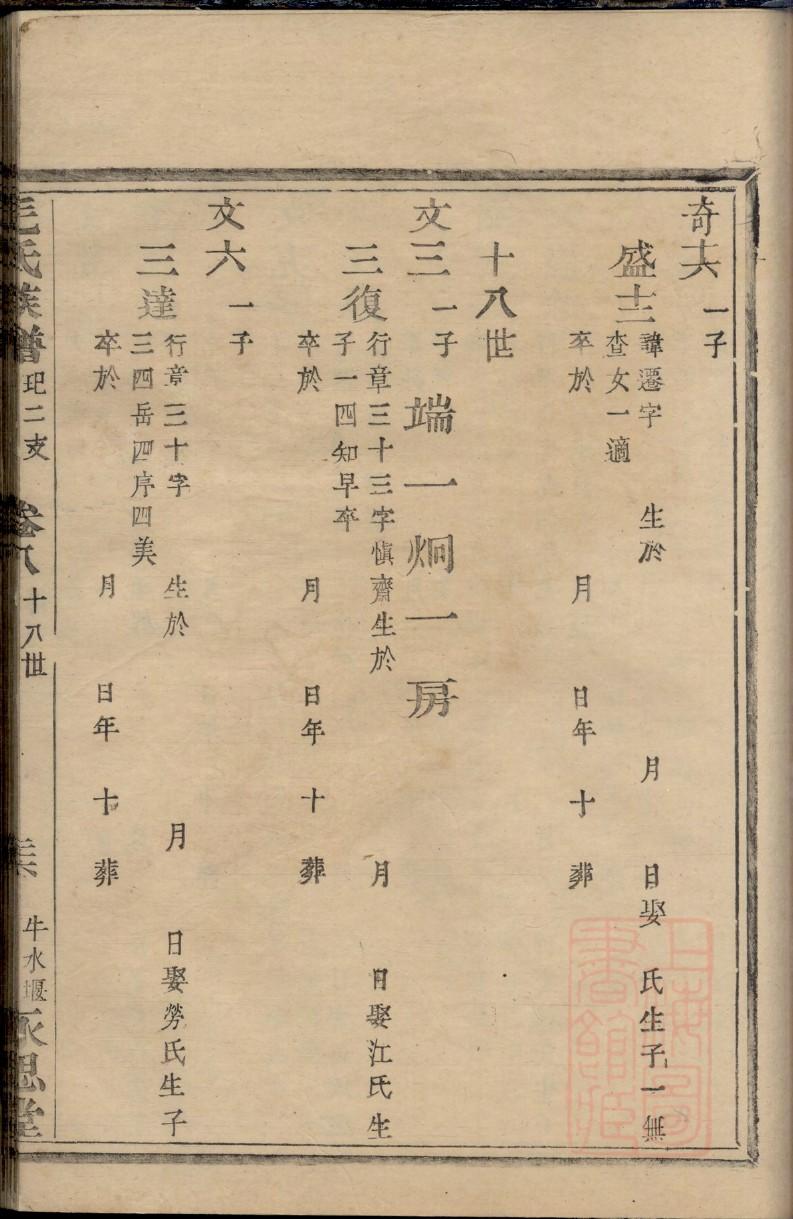 奇六 一子
盛士 諱遷字 生於 月 日娶 氏生子一無
查女一適
卒於 月 日年 十 葬
十八世
文三 一子 端一炯一房
三復 行章三十三字慎齋生於 月 日娶江氏生
子一四知早卒
卒於 月 日年 十 葬
文六 一子
三達 行章三十字 生於 月 日娶勞氏生子
三四岳四序四美
卒於 月 日年 十 葬
毛氏族譜 玘二支 卷八 十八世 牛水堰 永思堂
上海圖書館藏